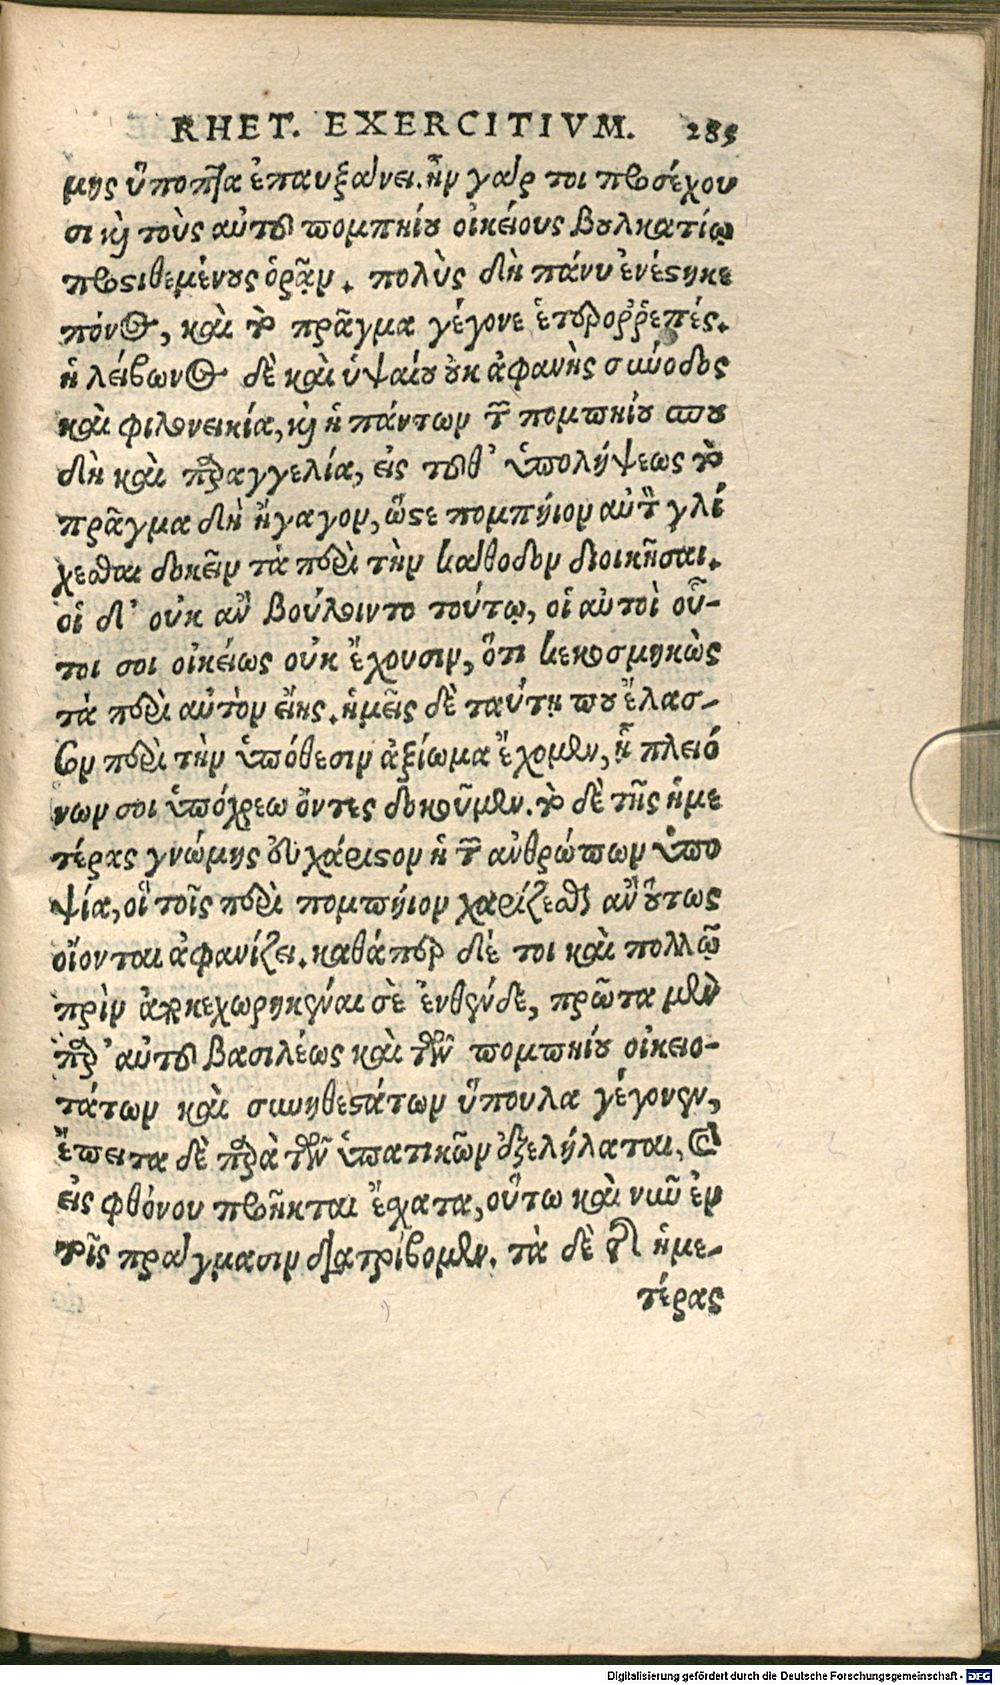 RHET. EXERCITIVM. 285
μης ὕποπτα ἐπαυξαίνει. ἢν γάρ τοι προσέχου
σι καὶ τοὺς αὐτοῦ πομπηίου οἰκείους βουλκατίῳ
προστιθεμένους ὁρᾷν. πολὺς δὴ πάνυ ἐνέστηκε
πόνος, καὶ τὸ πρᾶγμα γέγονε ἑτερορῥεπές.
ἡ λείβωνος δὲ καὶ ὑψαίου οὐκ ἀφανὴς σύνοδος
καὶ φιλονεικία, καὶ ἡ πάντων τῶν πομπηίου σπου
δὴ καὶ παραγγελία, εἰς τοῦθ' ὑπολήψεως τὸ
πρᾶγμα δὴ ἤγαγον, ὥστε πομπήιον αὐτὸν γλί
χεσθαι δοκεῖν τὰ περὶ τὴν κάθοδον διοικῆσαι.
οἱ δ' οὐκ ἂν βούλοιντο τούτῳ, οἱ αὐτοὶ οὗ-
τοι σοι οἰκείως οὐκ ἔχουσιν, ὅτι κεκοσμηκὼς
τὰ περὶ αὐτὸν εἴης. ἡμεῖς δὲ ταύτῃ που ἔλασ-
σον περὶ τὴν ὑπόθεσιν ἀξίωμα ἔχομεν, ᾗ πλειό
νων σοι ὑπόχρεω ὄντες δοκοῦμεν. τὸ δὲ τῆς ἡμε
τέρας γνώμης εὐχάριστον ἡ τῶν ἀνθρώπων ὑπο
ψία, οἳ τοῖς περὶ πομπήιον χαρίζεσθαι ἂν οὕτως
οἴονται ἀφανίζει. καθάπερ δέ τοι καὶ πολλῷ
πρὶν ἀποκεχωρηκέναι σὲ ἐνθένδε, πρῶτα μὲν
παρ' αὐτοῦ βασιλέως καὶ τῶν πομπηίου οἰκειο-
τάτων καὶ συνηθεστάτων ὕπουλα γέγονεν,
ἔπειτα δὲ παρὰ τῶν ὑπατικῶν ἐξελήλαται, καὶ
εἰς φθόνου προῆκται ἔσχατα, οὕτω καὶ νῦν ἐν
τοῖς πράγμασιν διατρίβομεν. τὰ δὲ τῆς ἡμε-
τέρας
Digitalisierung gefördert durch die Deutsche Forschungsgemeinschaft - DFG